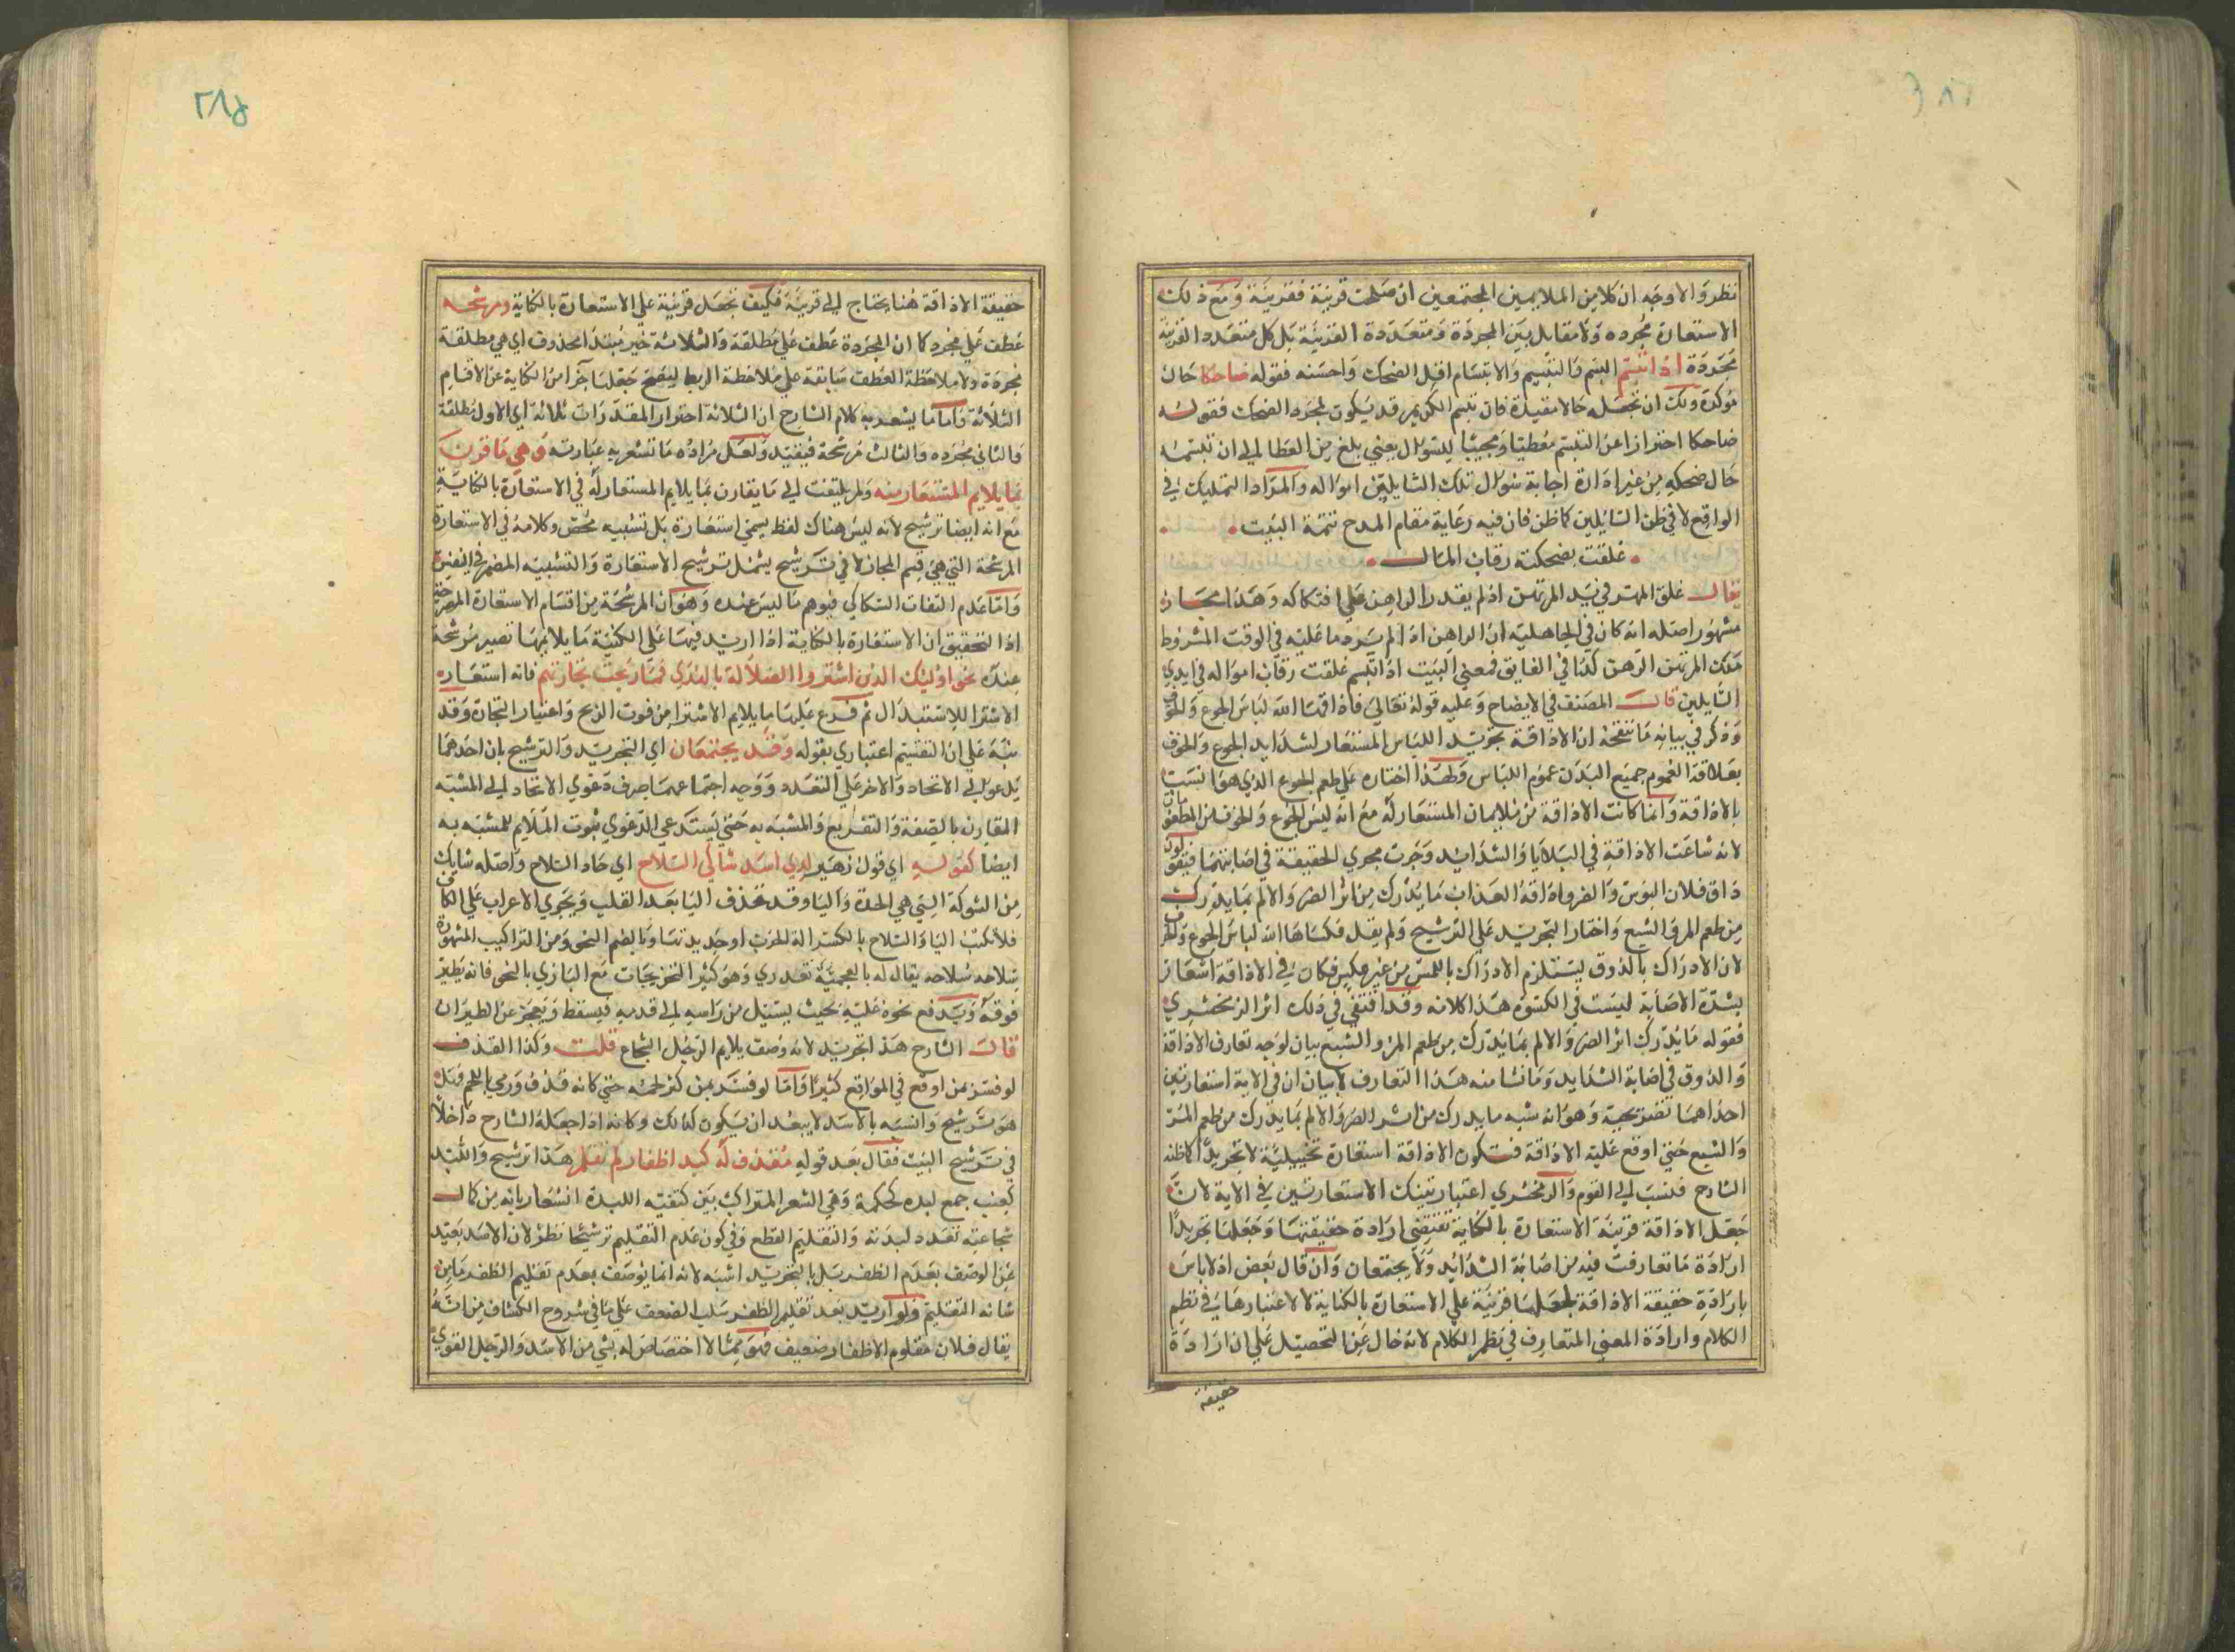 نظر والاوجه ان كلا من الملايمين المجتمعين ان صلحت قرينة فقرينة ومع ذلك
الاستعارة مجرده ولا مقابل بين المجردة ومتعددة القرينة بل كل متعدد القرينة
مجردة اذا تبسم البسم والتبسم والابتسام اقل الضحك واحسنه فقوله ضاحكا حال
موكدة ولك ان تجعله حالا مقيدة فان تبسم الكريم قد يكون لمجرد الضحك فقوله
ضاحكا احترازا عن التبسم معطيا ومجيبا للسوال يعني بلغ من العطا الي ان تبسمه
حال ضحكه من غير ارادة اجابة سوال تلك السايلين امواله والمراد التمليك في
الواقع لا في ظن السايلين كما ظن فان فيه رعاية مقام المدح تتمة البيت
غلقت بضحكته رقاب المال
يقال غلق الرهن في يد المرتهن اذ لم يقدر الراهن علي افتكاكه وهذا مجاز
مشهور اصله انه كان في الجاهلية ان الراهن اذا لم يرد ما عليه في الوقت المشروط
ملك المرتهن الرهن كذا في الفايق فمعني البيت اذا تبسم غلقت رقاب امواله في ايدي
السايلين قال المصنف في الايضاح وعليه قوله تعالي فاذاقها الله لباس الجوع والخوف
وذكر في بيانه ما تنقحه ان الاذاقة تجريد اللباس المستعار لشدايد الجوع والخوف
بعلاقة العموم جميع البدن عموم اللباس ولهذا اختاره علي طعم الجوع الذي هو انسب
بالاذاقة وانما كانت الاذاقة من ملايمات المستعار له مع انه ليس الجوع والخوف من المطعومات
لانه شاعت الاذاقة في البلايا والشدايد وجرت مجري الحقيقة في اصابتهما فيقولون
ذاق فلان البوس والضر واذاقه العذاب ما يدرك من اثر الضر والالم بما يدرك
من طعم المر والشبع واختار التجريد علي الترشيح ولم يقل فكساها الله لباس الجوع والخوف
لان الادراك بالذوق يستلزم الادراك باللمس من غير عكس فكان في الاذاقة اشعار
بشدة الاصابة ليست في الكسوة هذا كلامه وقد اقتفي في ذلك اثر الزمخشري
فقوله ما يدرك اثر الضر والالم بما يدرك من طعم المر والشبع بيان لوجه تعارف الاذاقة
والذوق في اصابة الشدايد وما نشا منه هذا التعارف لا بيان ان في الاية استعارتين
احداهما تصريحية وهو انه شبه ما يدرك من اثر الضر والالم بما يدرك من طعم المر
والشبع حتي اوقع عليه الاذاقة فتكون الاذاقة استعارة تخييلية لا تجريدا كما ظنه
الشارح فنسب الي القوم والزمخشري اعتبار تينك الاستعارتين في الاية لان
جعل الاذاقة قرينة الاستعارة بالكناية تقتضي ارادة حقيقتها وجعلها تجريدا
ارادة ما تعارفت فيه من اصابة الشدائد ولا يجتمعان وان قال بعض اذ لا باس
بارادة حقيقة الاذاقة لجعلها قرينة علي الاستعارة بالكناية لا لاعتبارها في نظم
الكلام وارادة المعني المتعارف في نظم الكلام لانه خال عن التحصيل علي ان ارادة
حقيقة
٢٨٥
حقيقة الاذاقة هنا يحتاج الي قرينة فكيف تجعل قرينة علي الاستعارة بالكناية ومرشحه
عطف علي مجرد كما ان المجردة عطف علي مطلقة والثلاثة خبر مبتدا محذوف اي هي مطلقة
مجردة ولا ملاحظة العطف سابقة علي ملاحظة الربط ليصح جعلها جزا من الكناية عن الاقسام
الثلاثة واما ما يشعر به كلام الشارح ان الثلاثة احترار المقدرات ثلاثة اي الاول مطلقة
والثاني مجرده والثالث مرشحة فبعيد ولعل مراده ما تشعر به عبارته وهي ما قرن
بما يلايم المستعار منه ولم يلتفت الي ما يقارن بما يلايم المستعار له في الاستعارة بالكناية
مع انه ايضا ترشيح لانه ليس هناك لفظ يسمي استعارة بل تشبيه محض وكلامه في الاستعارة
المرشحة التي هي قسم المجاز لا في ترشيح يشمل ترشيح الاستعارة والتشبيه المضمر في النفس
واما عدم التفات السكاكي فيوهم ما ليس عنده وهو ان المرشحة من اقسام الاستعارة المصرحة
اذ التحقيق ان الاستعارة بالكناية اذا اريد فيها علي المكنية ما يلايمها تصير مرشحة
عنده نحو اوليك الذين اشتروا الضلالة بالهدي فما ربحت تجارتهم فانه استعار
الاشترا للاستبدال ثم فرع عليها ما يلايم الاشترا من فوت الربح واعتبار التجارة وقد
نبه علي ان التقسيم اعتباري بقوله وقد يجتمعان اي التجريد والترشيح بان احدهما
يدعو الي الاتحاد والاخر علي التعدد ووجه اجتماعهما صرف دعوي الاتحاد الي المشبه
المقارن بالصفة والتفريع والمشبه به حتي يستدعي الدعوي ثبوت الملايم للمشبه به
ايضا كقوله اي قول زهير لدي اسد شاكي السلاح اي حاد السلاح واصله شايك
من الشوكة التي هي الحدة واليا وقد تحذف اليا بعد القلب ويجري الاعراب علي الكاف
فلا تكتب اليا والسلاح بالكسر الة الحرب او حديدتها وبالضم النجو ومن التراكيب المشهورة
سلاحه سلاحه يقال له بالعجمية تغدري وهو كثير التخريجات مع البازي بالنجو فانه يطير
فوقه ويدفع نجوه عليه بحيث يسيل من راسه الي قدمه فيسقط ويعجز عن الطيران
قال الشارح هذا تجريد لانه وصف يلايم الرجل الشجاع قلت وكذا القذف
لو فسر بمن اوقع في المواقع كثيرا واما لو فسر بمن كثر لحمه حتي كانه قذف ورمي باللحم قيل
هو ترشيح والنسبة بالاسد لا يبعد ان يكون كذلك وكانه اذا جعله الشارح داخلا
في ترشيح البيت فقال بعد قوله مقذف له لبد اظفاره لم تقلم هذا ترشيح واللبد
كعنب جمع لبده كحكمة وهي الشعر المتراكب بين كتفيه اللبدة اشعار بانه من كمال
شجاعته تعدد لبدته والتقليم القطع وفي كون عدم التقليم ترشيحا نظر لان الاسد بعيد
عن الوصف بعدم الظفر بل بالتجريد اشبه لانه انما يوصف بعدم تقليم الظفر ما من
شانه التقليم ولو اريد بعدم تقليم الظفر سلب الضعف علي ما في شروح الكشاف من انه
يقال فلان مقلوم الاظفار ضعيف فهو مما لا اختصاص له بشي من الاسد والرجل القوي